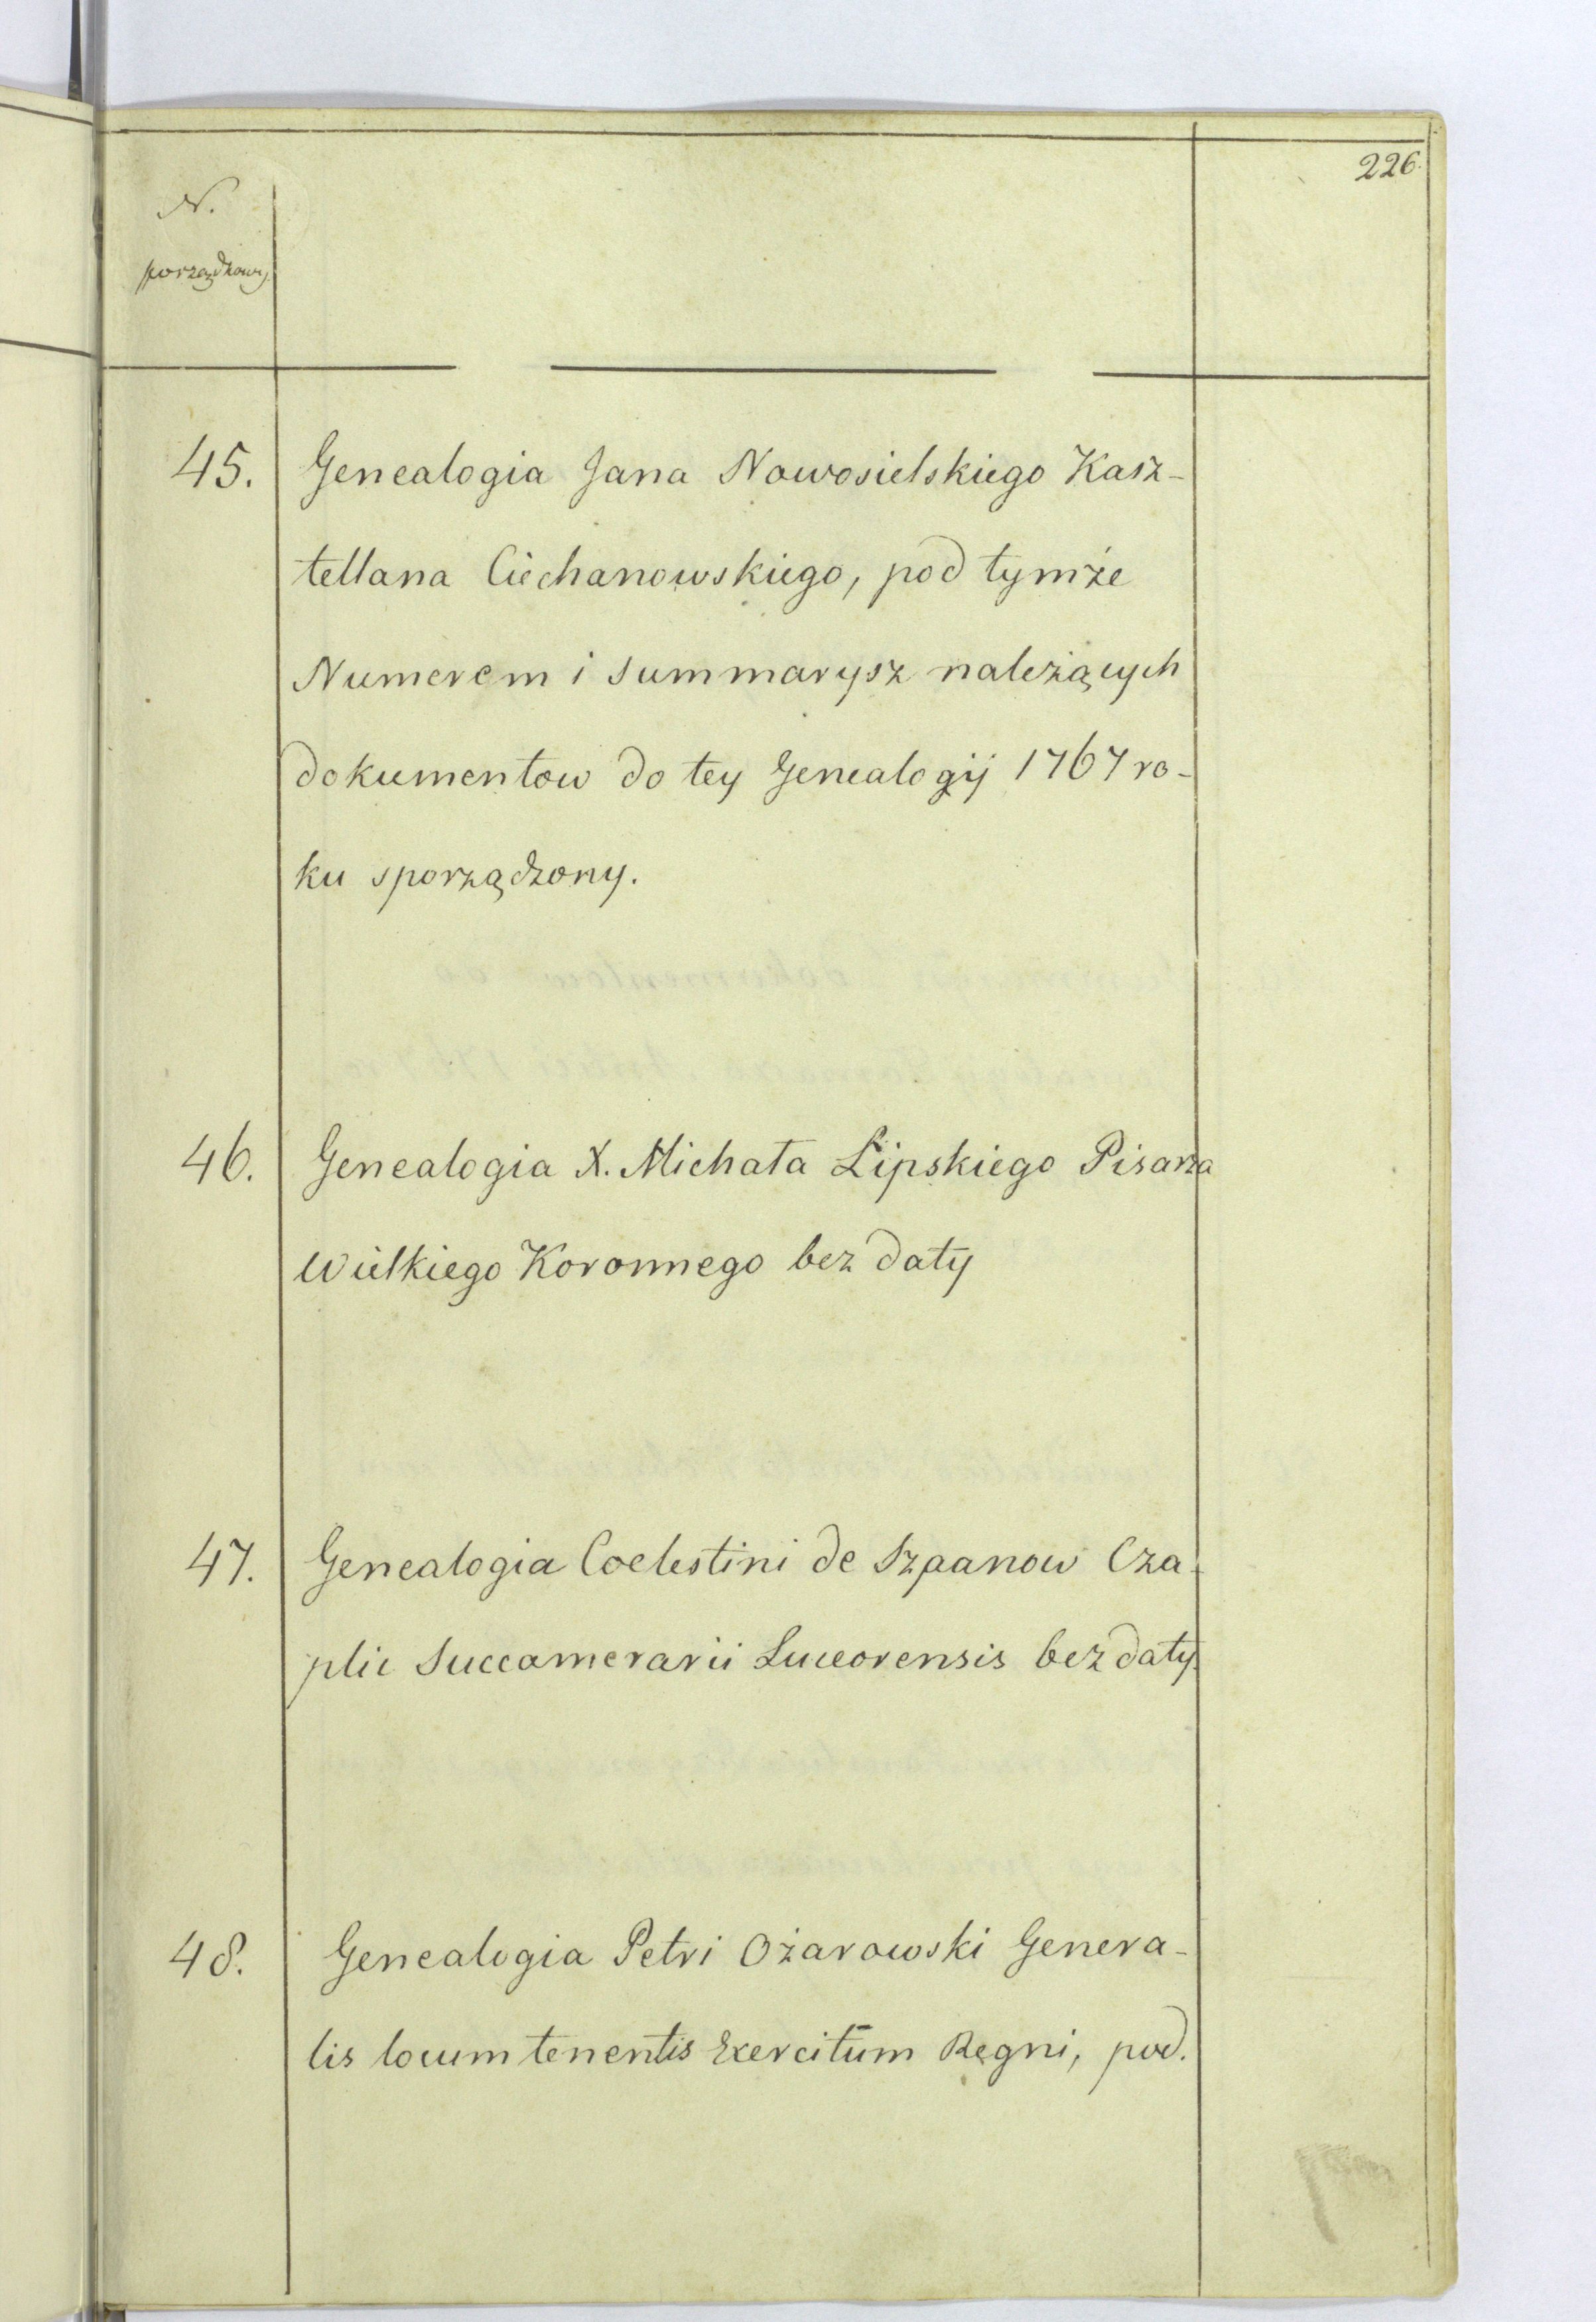 226.
N.
porządkowy.
45. Genealogia Jana Nowosielskiego Kasz-
tellana Ciechanowskiego, pod tymże
Numerem i summarysz należących
dokumentow do tey Genealogij 1767 ro-
ku sporządzony.
46. Genealogia X. Michała Lipskiego Pisarza
Wielkiego Koronnego bez daty
47. Genealogia Coelestini de Szpanow Cza-
plic Succamerarii Luceorensis bez daty.
48. Genealogia Petri Ożarowski Genera-
lis locum tenentis Exercitūm Regni, pod.